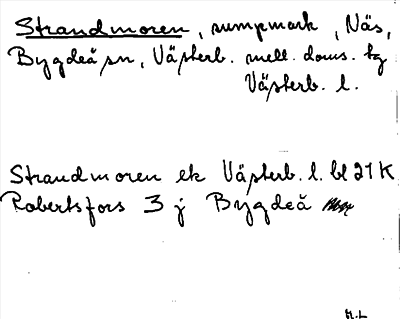 Strandmoren, sumpmark, Näs,
Bygdeå sn, Västerb. mell. doms. tg
Västerb. l.
Strandmoren ek Västerb. l. bl 21 K
Robertsfors 3 j Bygdeå